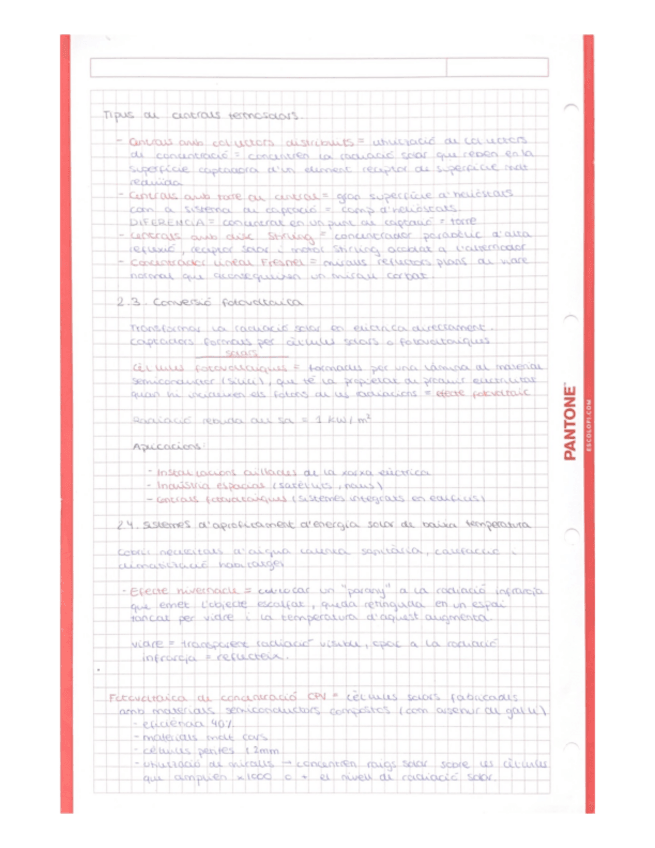 Tipus de centrals termosolars.
- Centrals amb col·lectors distribuïts = utilització de col·lectors
de concentració = concentren la radiació solar que reben en la
superfície captadora d'un element receptor de superfície molt
reduïda
- Centrals amb torre de central = gran superfície d'heliòstats
com a sistema de captació = camp d'heliòstats.
DIFERÈNCIA = concentrat en un punt de captació = torre
- Centrals amb disc Stirling = concentrador parabòlic d'alta
reflexió, receptor solar i motor Stirling acoblat a l'alternador
- Concentrador lineal Fresnel = miralls reflectors plans de vidre
normal que aconsegueixen un mirall corbat.
2.3. Conversió fotovoltaica
Transformar la radiació solar en elèctrica directament.
captadors formats per cèl·lules solars o fotovoltaiques
solars
Cèl·lules fotovoltaiques = formades per una làmina de material
semiconductor (silici), que té la propietat de produir electricitat
quan hi incideixen els fotons de les radiacions = efecte fotovoltaic
Radiació rebuda del sol = 1 kW/m²
Aplicacions:
- Instal·lacions aïllades de la xarxa elèctrica
- Indústria espacial (satèl·lits, naus)
- Centrals fotovoltaiques (sistemes integrats en edificis)
2.4. Sistemes d'aprofitament d'energia solar de baixa temperatura
Cobrir necessitats d'aigua calenta sanitària, calefacció i
climatització habitatges
- Efecte hivernacle = col·locar un "parany" a la radiació infraroja
que emet l'objecte escalfat, queda retinguda en un espai
tancat per vidre i la temperatura d'aquest augmenta.
vidre = transparent radiació visible, opac a la radiació
infraroja = reflecteix.
Fotovoltaica de concentració CPV = cèl·lules solars fabricades
amb materials semiconductors compostos (com arsenur de gal·li)
- eficiència 40%
- materials molt cars
- cèl·lules petites 12mm
- utilització de miralls → concentren raigs solar sobre les cèl·lules
que amplien x1000 o + el nivell de radiació solar.
PANTONE
EXCOLOFI.COM